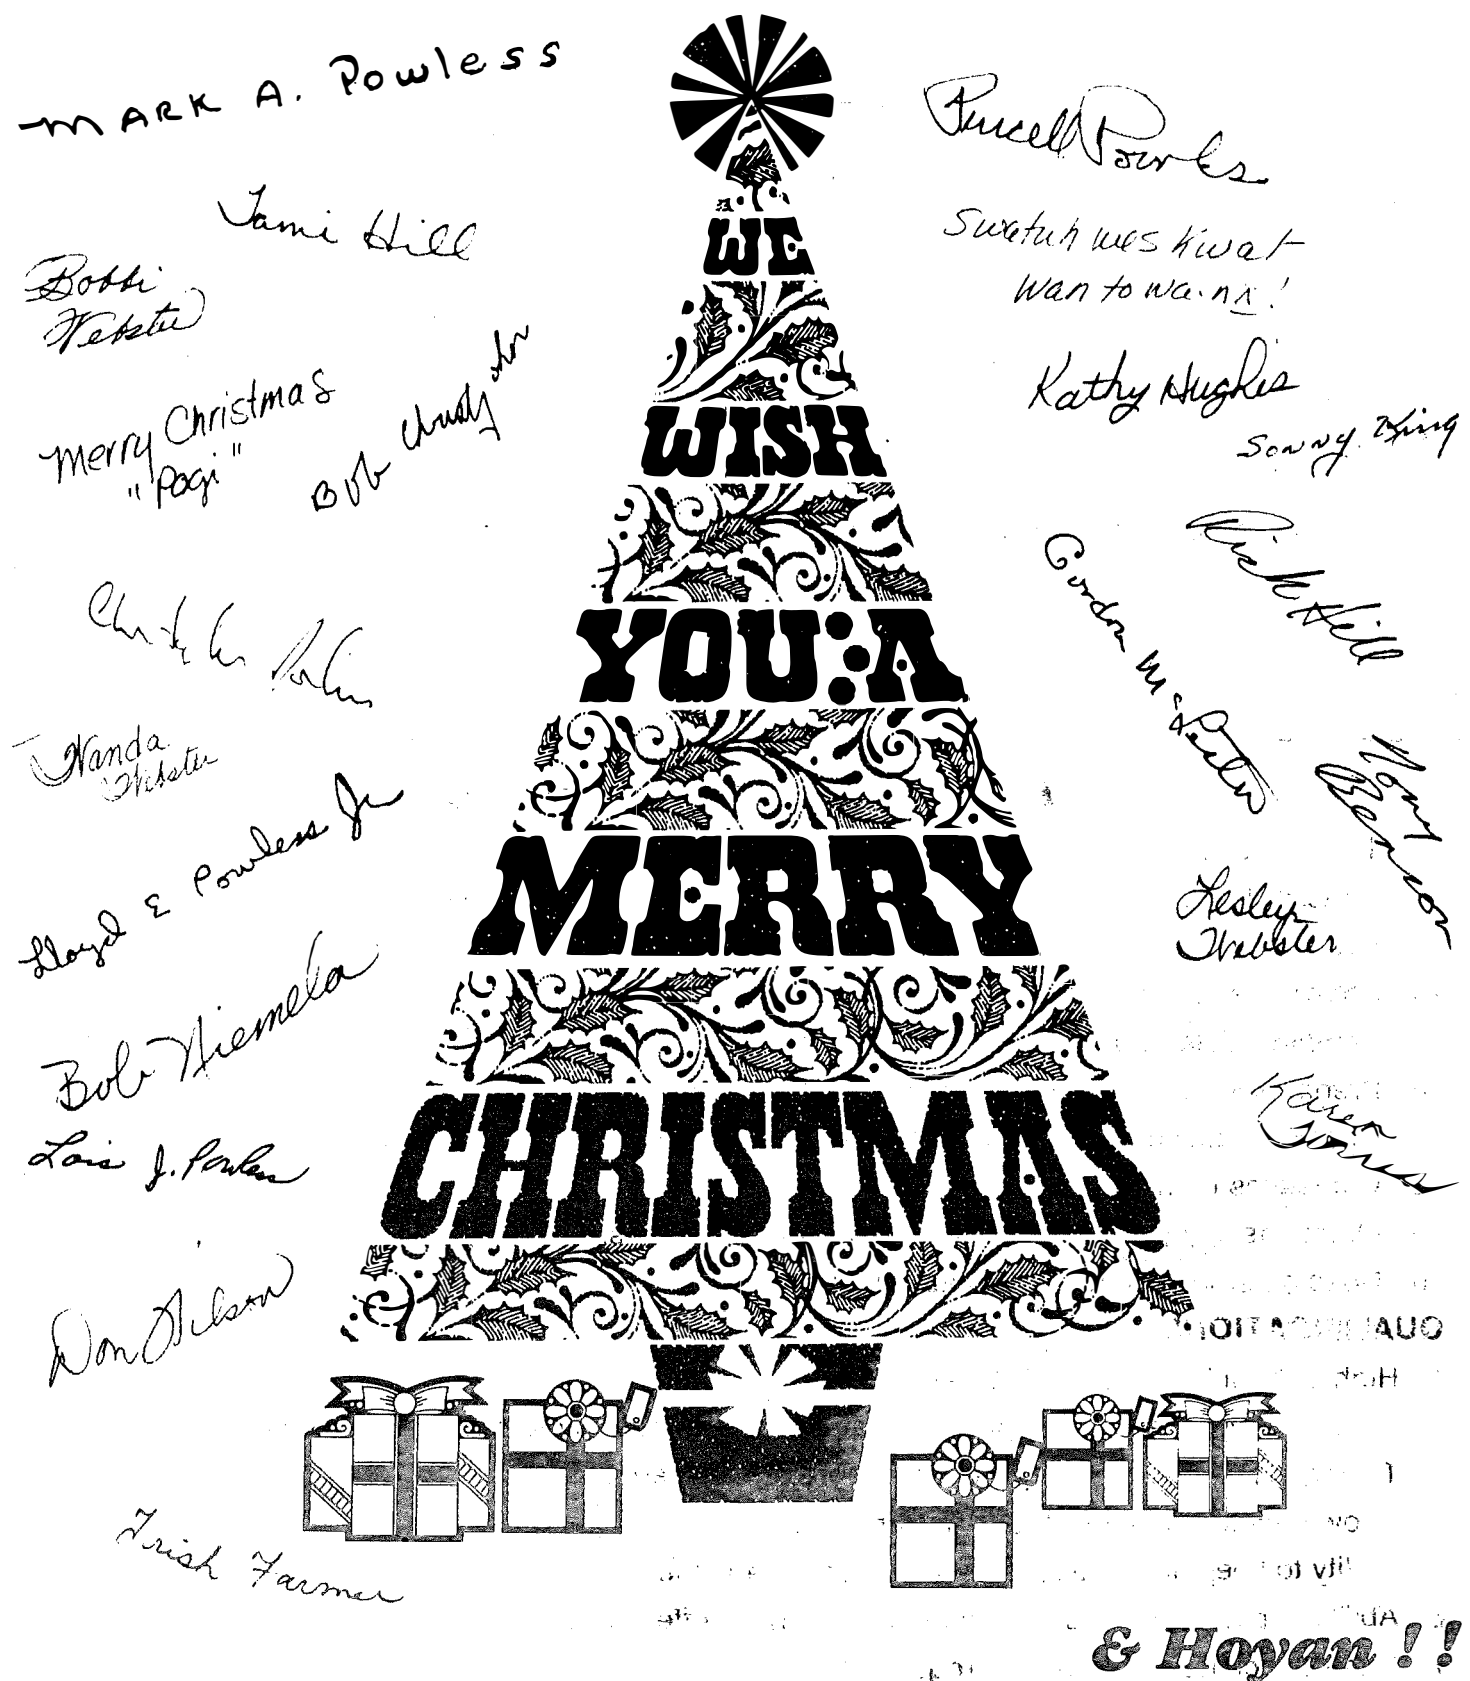 MARK A. Powless
Tami Hill
Bobbi
Webster
Merry Christmas
"Pogi"
Bob Christjohn
Wanda
Webster
Lloyd E Powless Jr
Bob Niemela
Lois J. Powless
Don Wilson
Trish Farmer
WE
WISH
YOU A
MERRY
CHRISTMAS
Purcell Powless
Swatuh wes kiwat
wan to wa·nʌ!
Kathy Hughes
Sonny King
Rick Hill
Gordon McLester
Benson
Lesley
Webster
Karen
& Hoyan !!